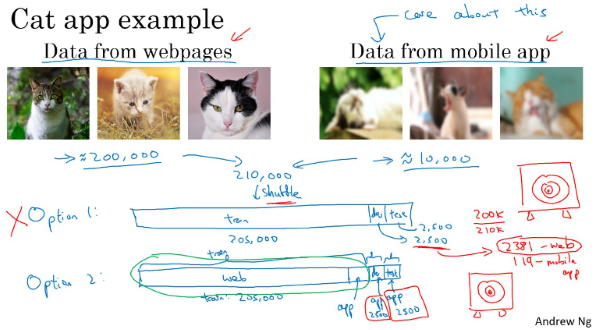 Cat app example
care about this
Data from webpages
Data from mobile app
≈200,000
≈10,000
210,000
shuffle
X Option 1:
train
dev
test
2,500
205,000
2,500
200K
210K
2381 - web
119 - mobile app
Option 2:
train
dev
test
web
app
dev
test
train: 205,000
app
app 2500
app 2500
Andrew Ng